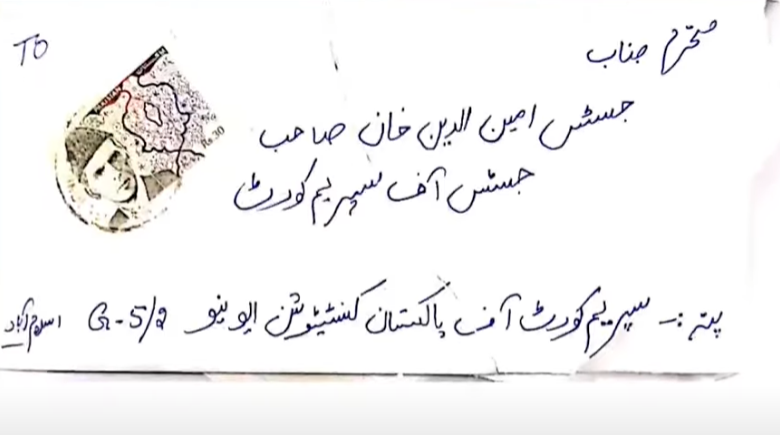 TO
محترم جناب
جسٹس امین الدین خان صاحب
جسٹس آف سپریم کورٹ
پتہ :- سپریم کورٹ آف پاکستان کنسٹیٹوشن ایونیو G-5/2 اسلام آباد
Rs.30